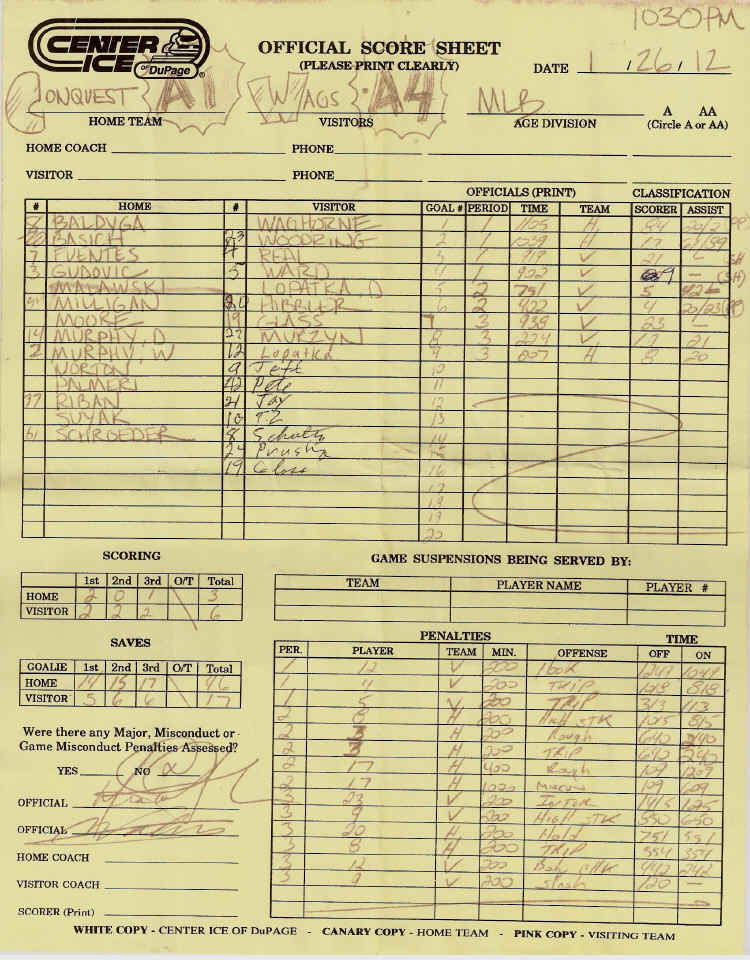 1030PM
CENTER ICE OF DuPAGE ®
OFFICIAL SCORE SHEET
(PLEASE PRINT CLEARLY)
DATE 1 / 26 / 12
CONQUEST A1 WAGS A4 MLB A AA
HOME TEAM VISITORS AGE DIVISION (Circle A or AA)
HOME COACH PHONE
VISITOR PHONE
OFFICIALS (PRINT) CLASSIFICATION
# HOME # VISITOR GOAL # PERIOD TIME TEAM SCORER ASSIST
8 BALDYGA WAGHORNE 1 1 1105 H 84
BASICH 23 WOODRING 2 1 1039 H 17 61/89
7 FUENTES 4 REAL 3 1 919 V 21 SH
3 GUDOVIC 5 WARD 4 1 902 V 9 — (SH)
MALAWSKI LOPATKA, D 5 2 751 V 5
MILLIGAN 20 HIBBLER 6 2 402 V 4 20/23 (PP)
MOORE 19 GLASS 7 3 938 V 23 —
14 MURPHY, D 27 MURZYN 8 3 224 V 12 21
2 MURPHY, W 12 Lopatka 9 3 007 H 8 20
NORTON 9 Jeff 10
PALMERI 42 Pete 11
77 RIBAN 21 Jay 12
SUYAK 10 TZ 13
61 SCHROEDER 8 Schultz 14
24 Prusha 15
19 Glass 16
17
18
19
20
SCORING
1st 2nd 3rd O/T Total
HOME 2 0 1 3
VISITOR 2 2 2 6
SAVES
GOALIE 1st 2nd 3rd O/T Total
HOME 14 15 17 46
VISITOR 5 6 6 17
Were there any Major, Misconduct or
Game Misconduct Penalties Assessed?
YES NO
OFFICIAL
OFFICIAL
HOME COACH
VISITOR COACH
SCORER (Print)
GAME SUSPENSIONS BEING SERVED BY:
TEAM PLAYER NAME PLAYER #
PENALTIES TIME
PER. PLAYER TEAM MIN. OFFENSE OFF ON
1 12 V 200 Hook 1247 1047
1 4 V 200 TRIP 1018 818
1 5 V 200 TRIP 313 113
2 8 H 200 High STK 1015 815
2 3 H 200 Rough 640 240
2 3 H 200 TRIP 640 240
2 17 H 400 Rough 109 1209
2 17 H 1000 109 609
3 23 V 200 INTER 1415 1215
3 9 V 200 HIGH STK 850 650
3 20 H 200 Hold 751 551
3 8 H 200 TRIP 554 354
3 12 V 200 Body CHK 442 242
3 9 V 200 Slash 120 —
WHITE COPY - CENTER ICE OF DuPAGE - CANARY COPY - HOME TEAM - PINK COPY - VISITING TEAM